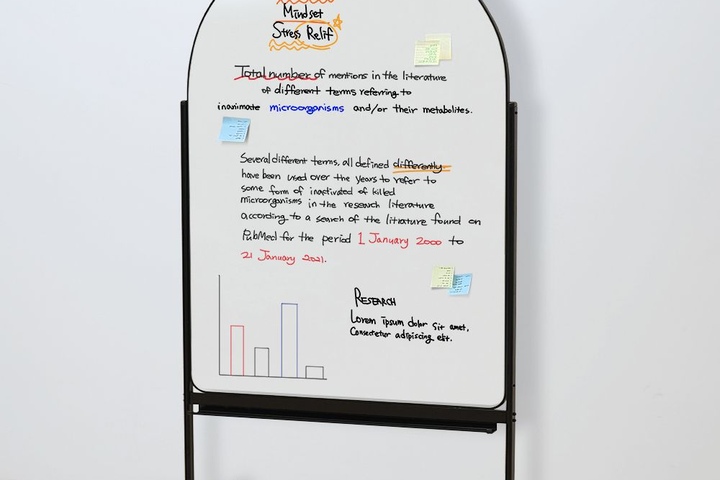 Mindset
Stress Relif
Total number of mentions in the literature
of different terms referring to
inanimate microorganisms and/or their metabolites.
Several different terms, all defined differently
have been used over the years to refer to
some form of inactivated of killed
microorganisms in the research literature
according to a search of the litrature found on
PubMed for the period 1 January 2000 to
21 January 2021.
RESEARCH
Lorem ipsum dolor sit amet,
Consectetur adipiscing elit.